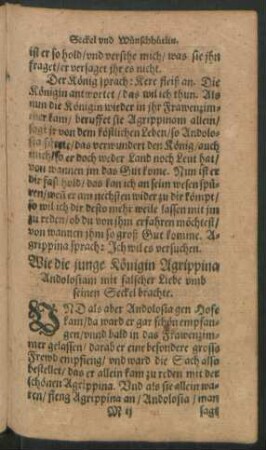 Seckel vnd Wünschhütlin.
ist er so hold/vnd versihe mich/ was sie jhn
fraget/er versaget jhr es nicht.
Der König sprach: Kere fleiß an. Die
Königin antwortet/das wil ich thun. Als
nun die Königin wieder in jhr Frawenzim-
mer kam/ beruffet sie Agrippinam allein/
sagt jr von dem köstlichen Leben/so Andolo-
sia fürte/das verwundert den König/auch
mich/so er doch weder Land noch Leut hat/
von wannen jm das Gut kome. Nun ist er
dir fast hold/ das kan ich an seim wesen spü-
ren/wen er am nechsten wider zu dir kömpt/
so wil ich dir desto mehr weile lassen mit jm
zu reden/ ob du von jhm erfahren möchtest/
von wannen jhm so groß Gut komme. A-
grippina sprach: Ich wil es versuchen.
Wie die junge Königin Agrippina
Andolosiam mit falscher Liebe vmb
seinen Seckel brachte.
VND als aber Andolosia gen Hofe
kam/da ward er gar schön empfan-
gen/vnnd bald in das Frawenzim-
mer gelassen/ darab er ein besondere grosse
Frewd empfieng/ vnd ward die Sach also
bestellet/das er allein kam zu reden mit der
schönen Agrippina. Vnd als sie allein wa-
ren/ fieng Agrippina an/ Andolosia/ man
M ij sagt